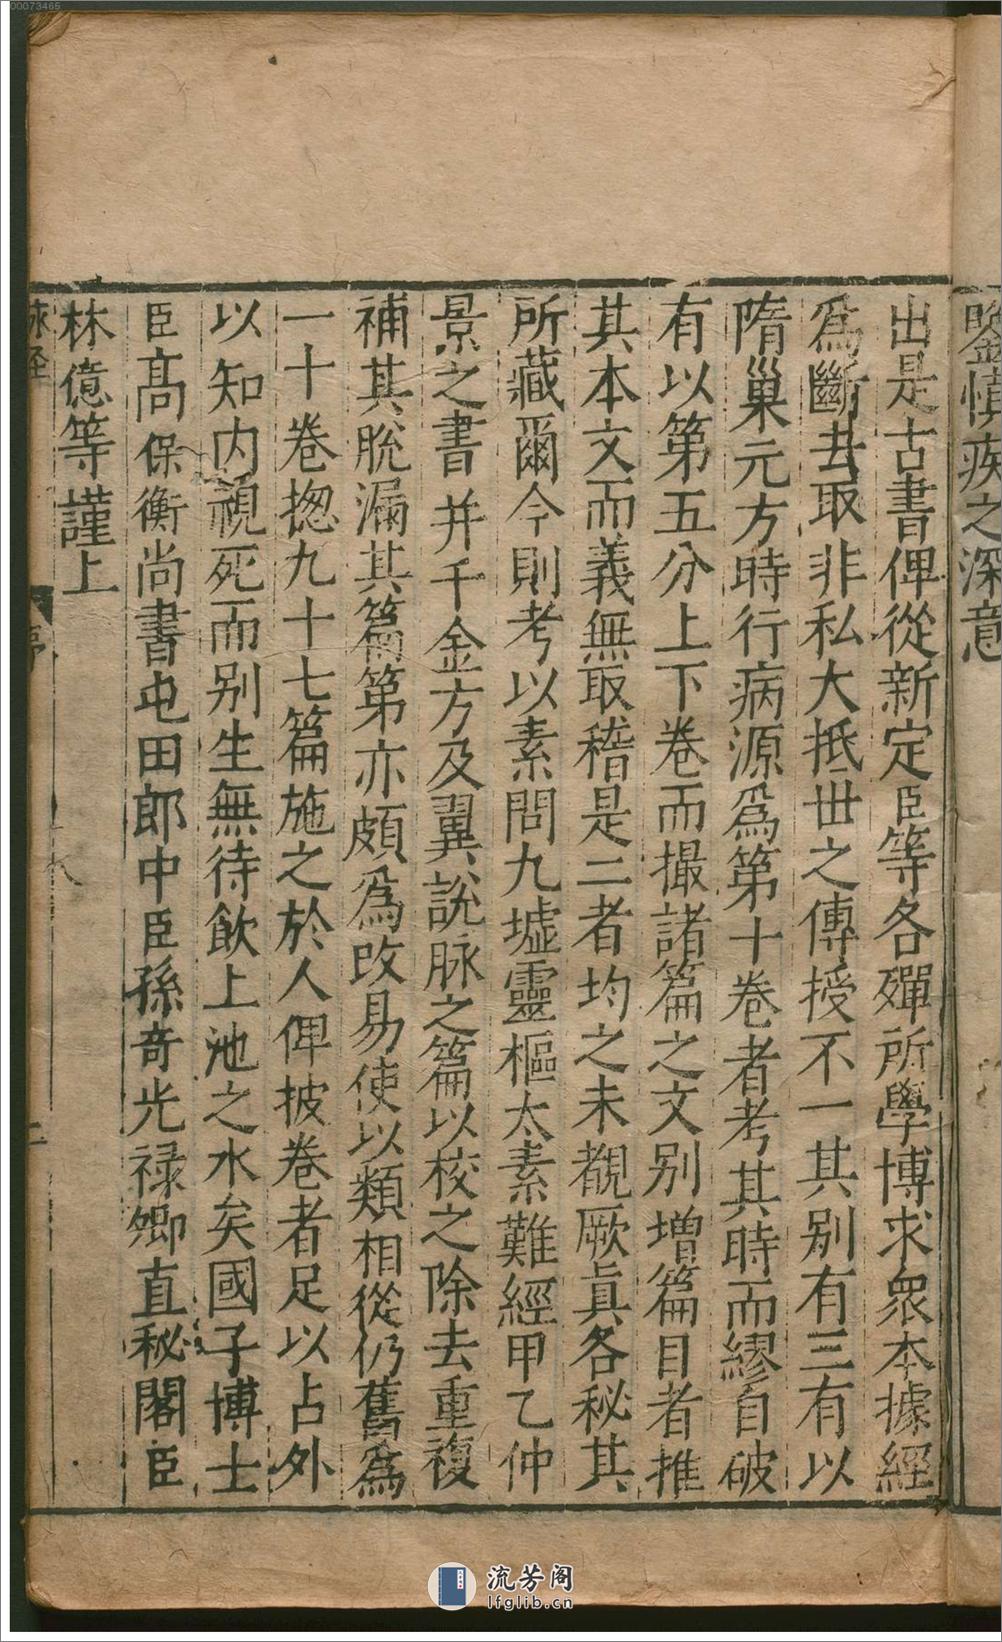 00073465
鑒慎疾之深意
出是古書俾從新定臣等各殫所學博求衆本據經
爲斷去取非私大抵丗之傳授不一其別有三有以
隋巢元方時行病源爲第十卷者考其時而繆自破
有以第五分上下卷而撮諸篇之文別增篇目者推
其本文而義無取稽是二者均之未覩厥眞各秘其
所藏爾今則考以素問九墟靈樞太素難經甲乙仲
景之書并千金方及翼說脉之篇以校之除去重複
補其脫漏其篇第亦頗爲改易使以類相從仍舊爲
一十卷揔九十七篇施之於人俾披卷者足以占外
以知内視死而别生無待飲上池之水矣國子博士
臣高保衡尚書屯田郎中臣孫奇光禄卿直秘閣臣
林億等謹上
脉經
序
二
流芳阁
lfglib.cn